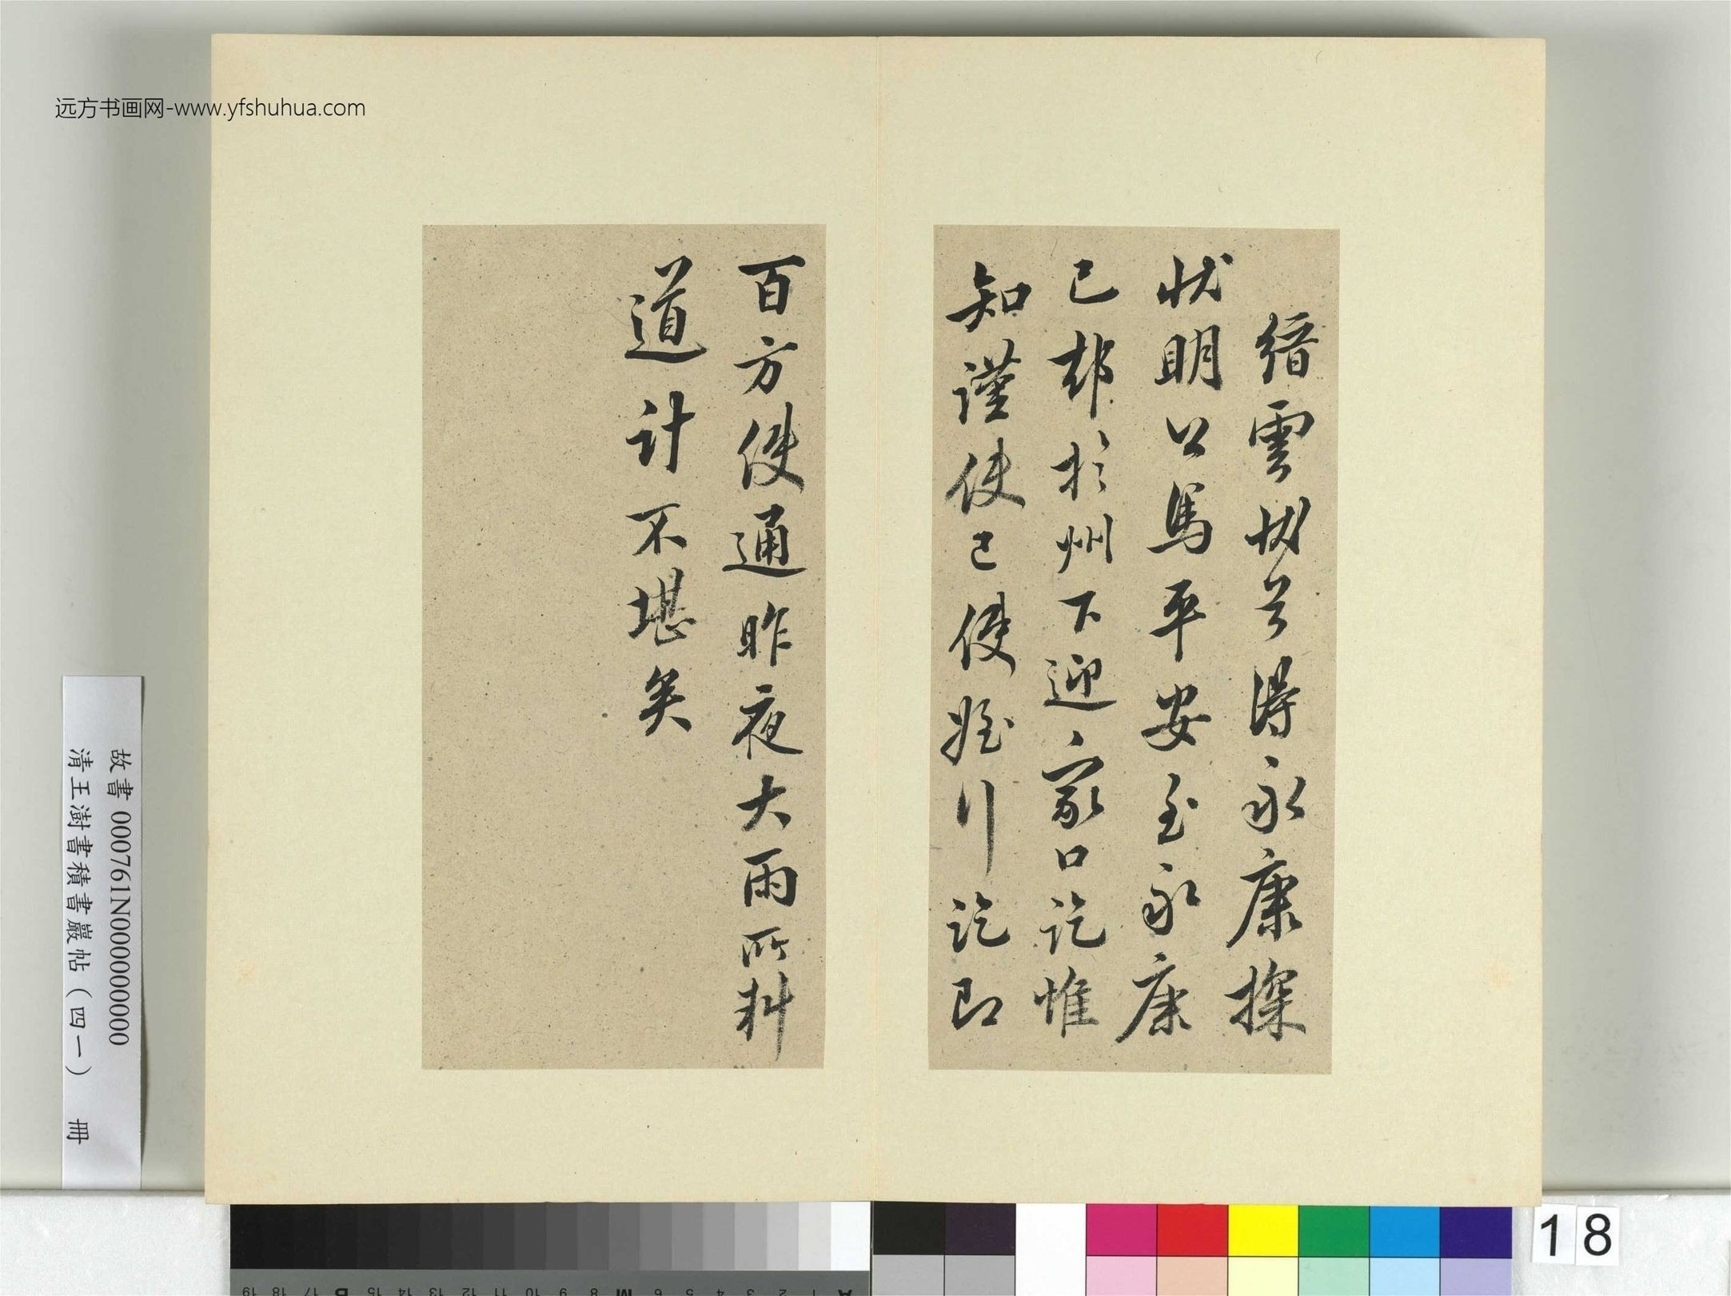 远方书画网-www.yfshuhua.com
缙雲状并得永康探
状明公馬平安至永康
已都於州下迎家口訖惟
知謹使已使姪行訖即
百方使通昨夜大雨所料
道計不堪矣
故書 000761N000000000
清王澍書積書巖帖(四一) 冊
18